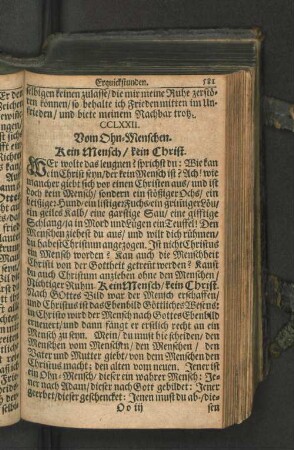 Erquickstunden. 581
selbigen keinen zulasse/ die mir meine Ruhe zerstö-
ren können/ so behalte ich Frieden mitten im Un-
frieden/ und biete meinem Nachbar trotz.
CCLXXII.
Vom Ohn-Menschen.
Kein Mensch/ kein Christ.
WEr wolte das leugnen? sprichst du: Wie kan
ein Christ seyn/ der kein Mensch ist? Ach! wie
mancher giebt sich vor einen Christen aus/ und ist
doch kein Mensch/ sondern ein stössiger Ochs/ ein
beissiger Hund/ ein listiger Fuchs/ ein grimmiger Löw/
ein geiles Kalb/ eine garstige Sau/ eine gifftige
Schlang/ ja in Mord und Lügen ein Teuffel! Den
Menschen ziehest du aus/ und wilt dich rühmen/
du habest Christum angezogen. Ist nicht Christus
ein Mensch worden? Kan auch die Menschheit
Christi von der Gottheit getrent werden? Kanst
du auch Christum anziehen ohne den Menschen?
Nichtiger Ruhm. Kein Mensch/ kein Christ.
Nach Gottes Bild war der Mensch erschaffen/
und Christus ist das Ebenbild Göttliches Wesens
in Christo wird der Mensch nach Gottes Ebenbild
erneuert/ und dann fängt er erstlich recht an ein
Mensch zu seyn. Mein/ du must hie scheiden/ den
Menschen vom Menschen/ den Menschen/ den
Vater und Mutter giebt/ von dem Menschen den
Christus macht; den alten vom neuen. Jener ist
ein Ohn-Mensch/ dieser ein wahrer Mensch: Je-
ner nach Adam/ dieser nach Gott gebildet: Jener
geerbet/ dieser geschencket: Jenen must du ab-/ die-
Oo iij sen